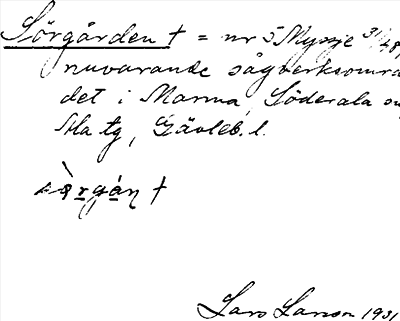 Sörgården † = nr 5 Myskje 3 1/48,
nuvarande sågverksområ
det i Marma, Söderala sn
Ala tg, Gävleb. l.
sòrgán †
Lars Larson 1931